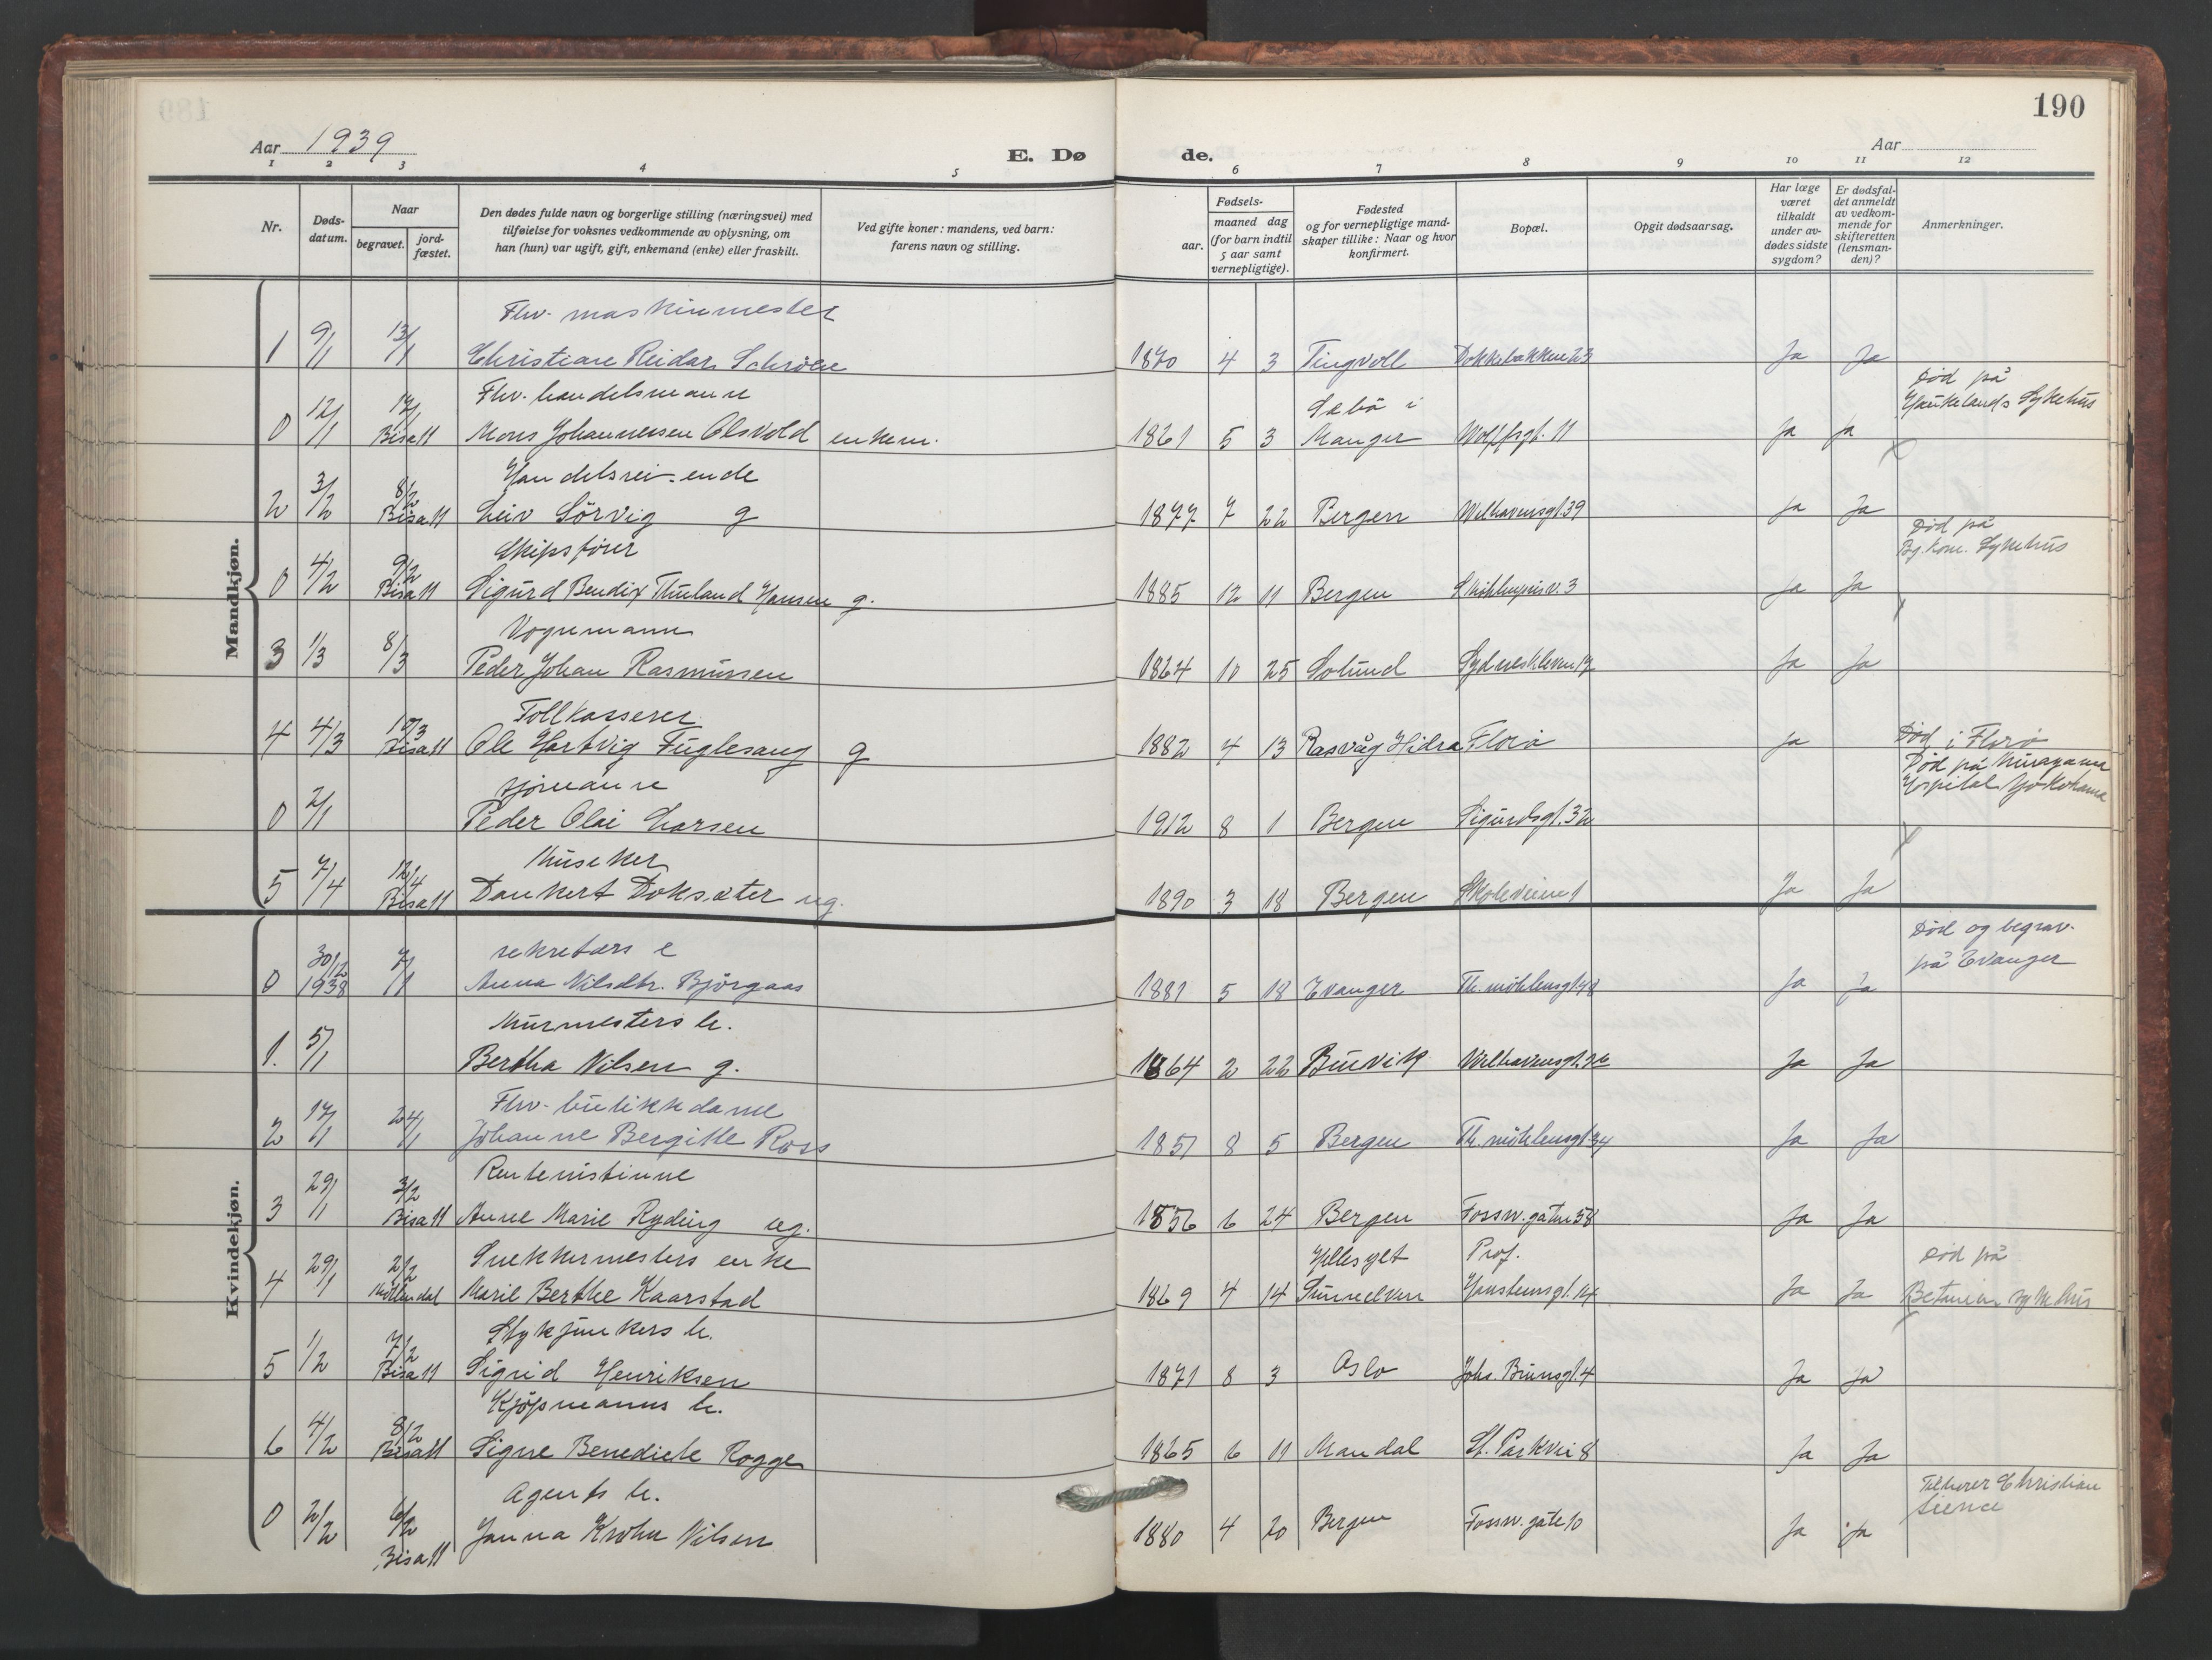 190
Aar 1939
E. Dø de.
Aar
1 2 3 4 5 6 7 8 9 10 11 12
Nr.
Døds-
datum.
Naar
begravet.
jord-
fæstet.
Den dødes fulde navn og borgerlige stilling (næringsvei) med
tilføielse for voksnes vedkommende av oplysning, om
han (hun) var ugift, gift, enkemand (enke) eller fraskilt.
Ved gifte koner: mandens, ved barn:
farens navn og stilling.
Fødsels-
aar.
maaned dag
(for barn indtil
5 aar samt
vernepligtige).
Fødested
og for vernepligtige mand-
skaper tillike: Naar og hvor
konfirmert.
Bopæl.
Opgit dødsaarsag.
Har læge
været
tilkaldt
under av-
dødes sidste
sygdom?
Er dødsfal-
det anmeldt
av vedkom-
mende for
skifteretten
(lensman-
den)?
Anmerkninger.
Mandkjøn.
Fhv. maskinmester
1 9/1 13/1 Christian Reidar Schröen 1870 4 3 Tingvoll Dokkebakken 23 Ja Ja
Fhv. handelsmann Sæbö i Död på
Haukelands Sykehus
0 12/1 17/1 Bisatt Mons Johannesen Olsvold enkem. 1861 5 3 Manger Wolffsgt. 11 Ja Ja
Handelsreisende
2 3/2 8/2 Bisatt Leiv Sörvig g 1877 7 22 Bergen Welhavensgt. 39 Ja Ja
Skipsförer Död på
Bg. kom. Sykehus
0 4/2 9/2 Bisatt Sigurd Bendix Thuland Hansen g. 1885 12 11 Bergen 3 Ja Ja
Vognmann
3 1/3 8/3 Peder Johan Rasmussen 1864 10 25 Solund Sydneskleven 17 Ja Ja
Tollkasserer
4 4/3 10/3 Bisatt Ole Hartvig Fuglesang g 1882 4 13 Rasvåg Hidra Florö Ja Död i Florö
sjömann Död på
Hospital Yokohama
0 2/1 Peder Olai Larsen 1912 8 1 Bergen Sigurdsgt. 32
Musiker
5 7/4 12/4 Bisatt Dankert Doksæter ug. 1890 3 18 Bergen Skoleveien 1 Ja Ja
Kvindekjøn.
sekretærs e Död og begrav.
på Evanger
0 30/12 1938 7/1 Anna Nilsdtr. Björgaas 1881 5 18 Evanger Th. möhlensgt. 48 Ja Ja
Murmesters h.
1. 5/1 Bertha Nilsen g. 1864 2 22 Buvik Welhavensgt. Ja Ja
Fhv. butikkdame
2 17/1 24/1 Johanne Bergitte Ross 1851 8 5 Bergen Th. möhlensgt. 34 Ja Ja
Rentenistinne
3 29/1 3/2 Bisatt Anne Marie Ryding ug. 1856 6 24 Bergen Fossw. gaten 58 Ja Ja
Snekkermesters enke Hellesylt Prof. Död på
4 29/1 2/2 Möllendal Marie Berthe Kaarstad 1869 4 14 Sunnelven Hansteensgt. 14 Ja Ja Betanien sykehus
Stykjunkers h.
5 1/2 7/2 Bisatt Sigrid Henriksen 1871 8 3 Oslo Johs. Brunsgt. 4 Ja Ja
Kjöpmanns h.
6 4/2 8/2 Bisatt Signe Benedicte Rogge 1865 6 11 Mandal St. Parkvei 8 Ja Ja
Agents h. Tilhører Christian
Sience
0 2/2 6/2 Bisatt Janna Krohn Nilsen 1880 4 20 Bergen Fossw. gate 10 Ja Ja